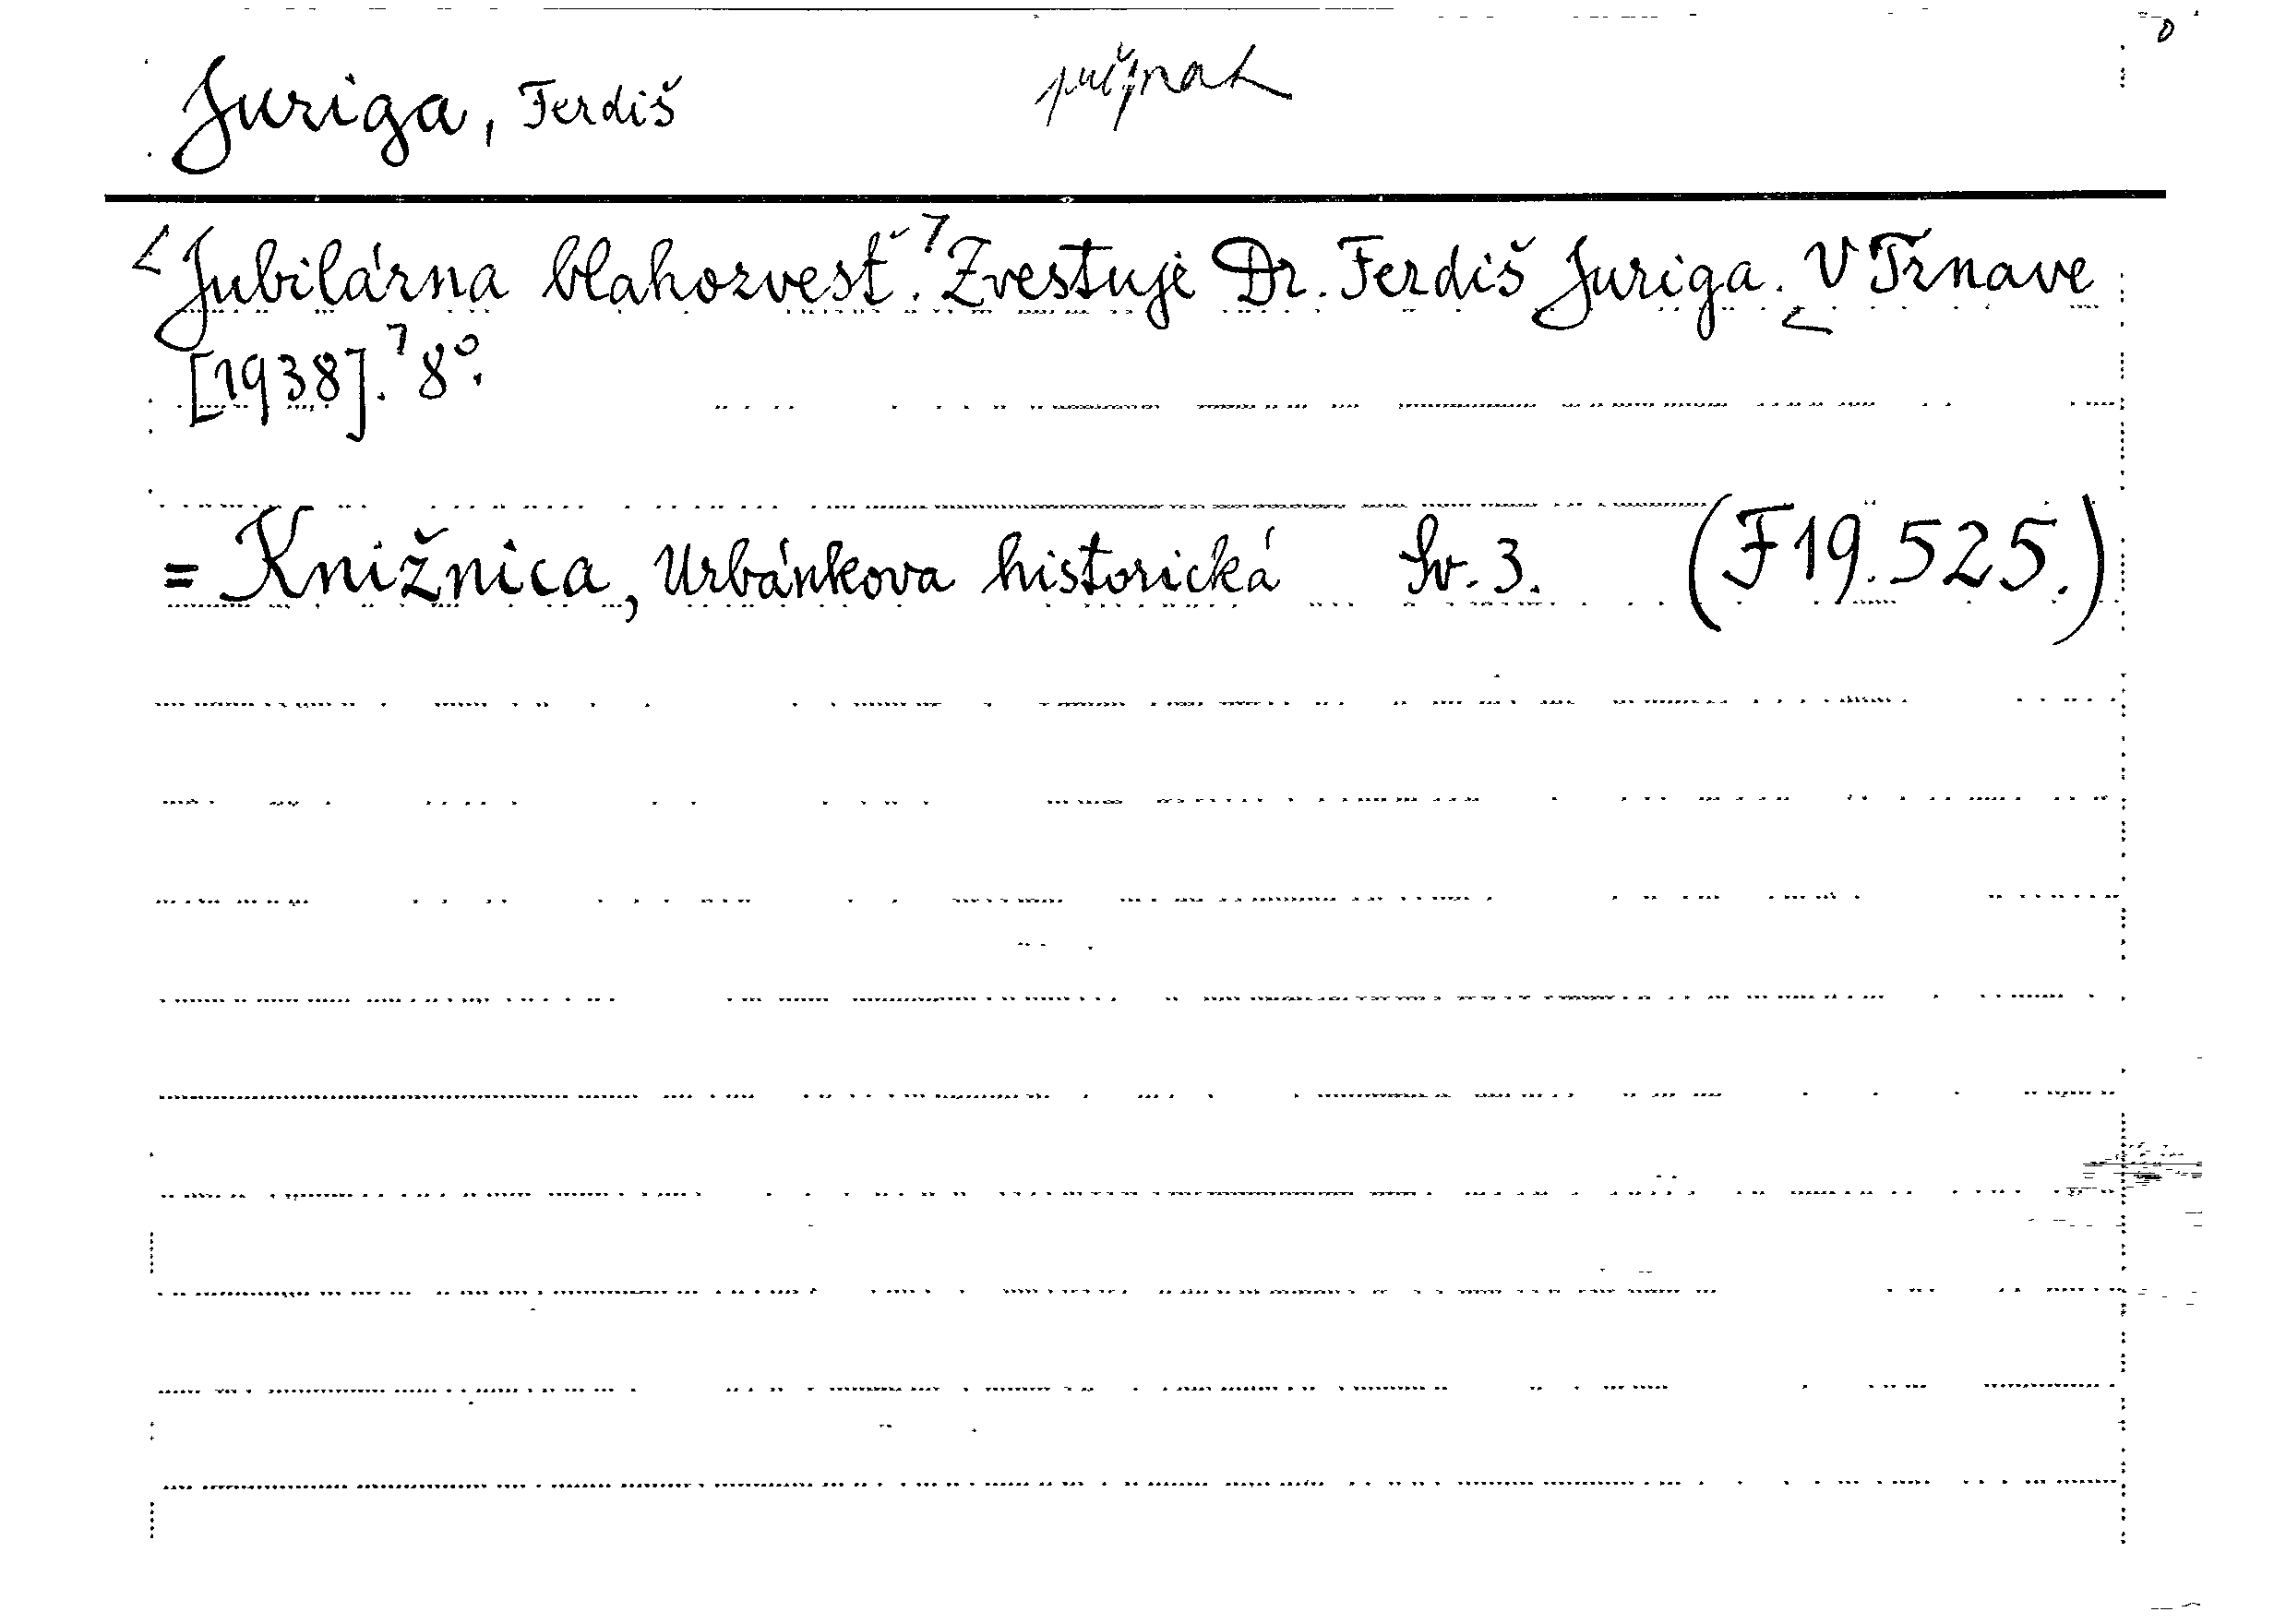 Juriga, Ferdiš
Jubilárna blahozvesť. Zvestuje Dr. Ferdiš Juriga. V Trnave
[1938]. 8°.
= Knižnica, Urbánkova historická Sv. 3. (F 19.525.)